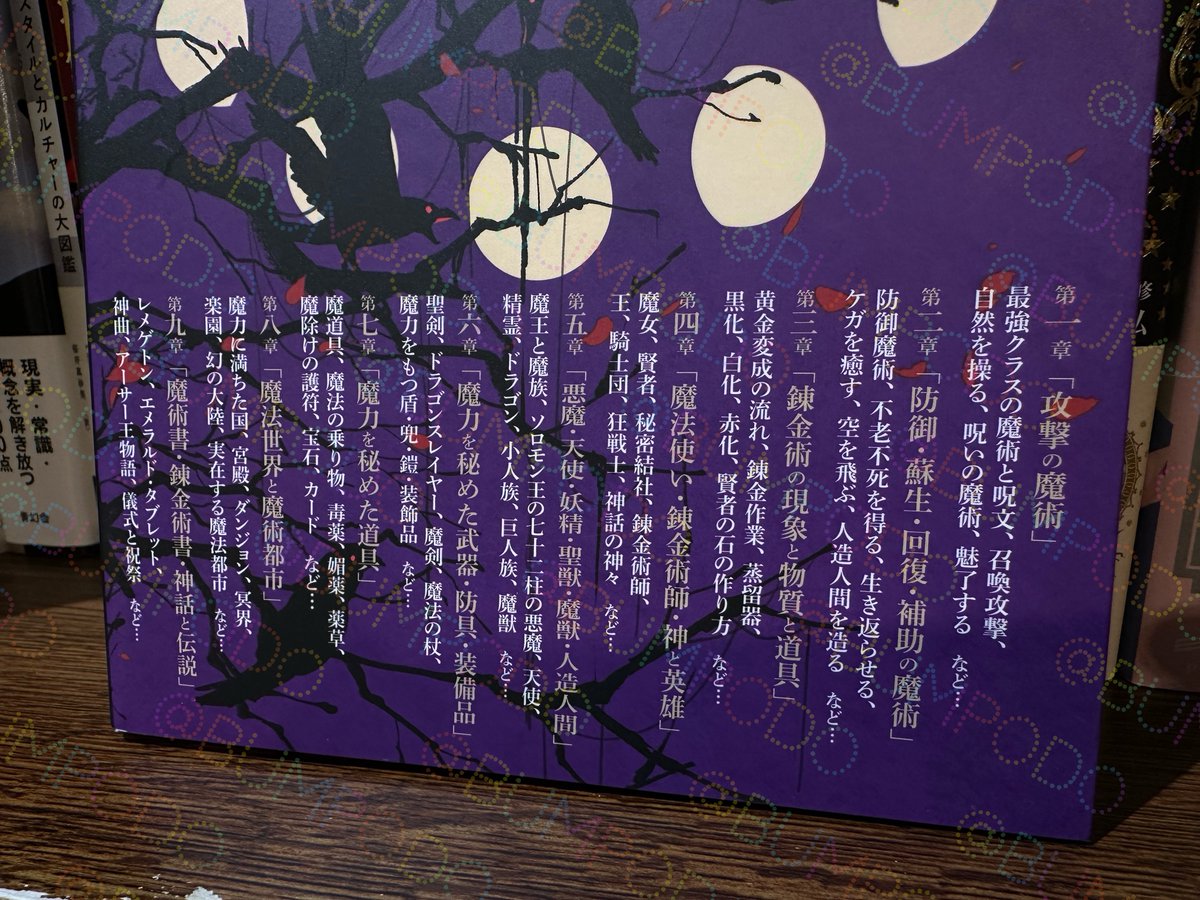 第一章「攻撃の魔術」
最強クラスの魔術と呪文、召喚攻撃、
自然を操る、呪いの魔術、魅了する　など…
第二章「防御・蘇生・回復・補助の魔術」
防御魔術、不老不死を得る、生き返らせる、
ケガを癒す、空を飛ぶ、人造人間を造る　など…
第三章「錬金術の現象と物質と道具」
黄金変成の流れ、錬金作業、蒸留器、
黒化、白化、赤化、賢者の石の作り方　など…
第四章「魔法使い・錬金術師・神と英雄」
魔女、賢者、秘密結社、錬金術師、
王、騎士団、狂戦士、神話の神々　など…
第五章「悪魔・天使・妖精・聖獣・魔獣・人造人間」
魔王と魔族、ソロモン王の七十二柱の悪魔、天使、
精霊、ドラゴン、小人族、巨人族、魔獣　など…
第六章「魔力を秘めた武器・防具・装備品」
聖剣、ドラゴンスレイヤー、魔剣、魔法の杖、
魔力をもつ盾・兜・鎧・装飾品　など…
第七章「魔力を秘めた道具」
魔道具、魔法の乗り物、毒薬、媚薬、薬草、
魔除けの護符、宝石、カード　など…
第八章「魔法世界と魔術都市」
魔力に満ちた国、宮殿、ダンジョン、冥界、
楽園、幻の大陸、実在する魔法都市　など…
第九章「魔術書・錬金術書・神話と伝説」
レメゲトン、エメラルド・タブレット、
神曲、アーサー王物語、儀式と祝祭　など…
スタイルとカルチャーの大図鑑
現実・常識・
概念を解き放つ
青幻舎
@BUMPODO